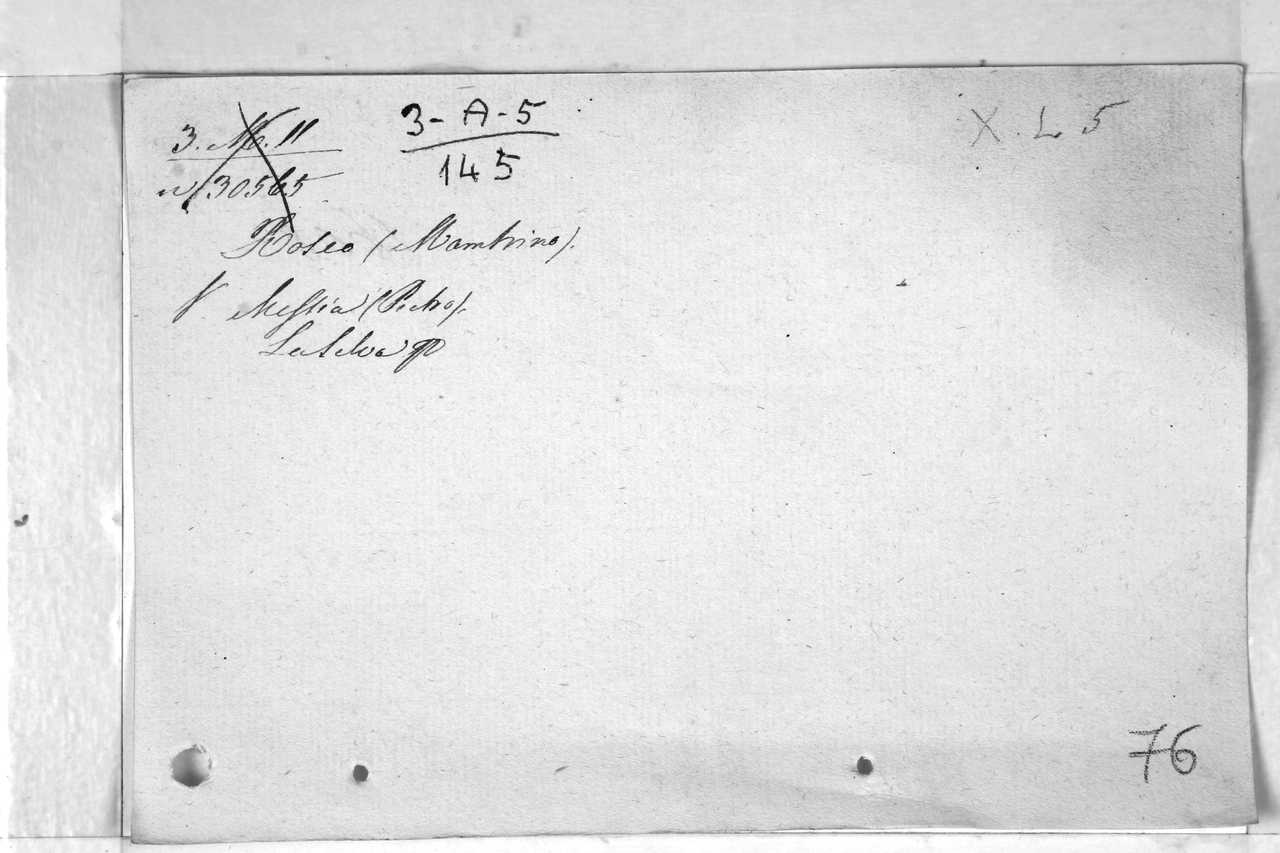 3. M. 11
3-A-5
X. L 5
nº 30565
145
Roseo (Mambrino).
V Messia (Pietro).
La Selva
76